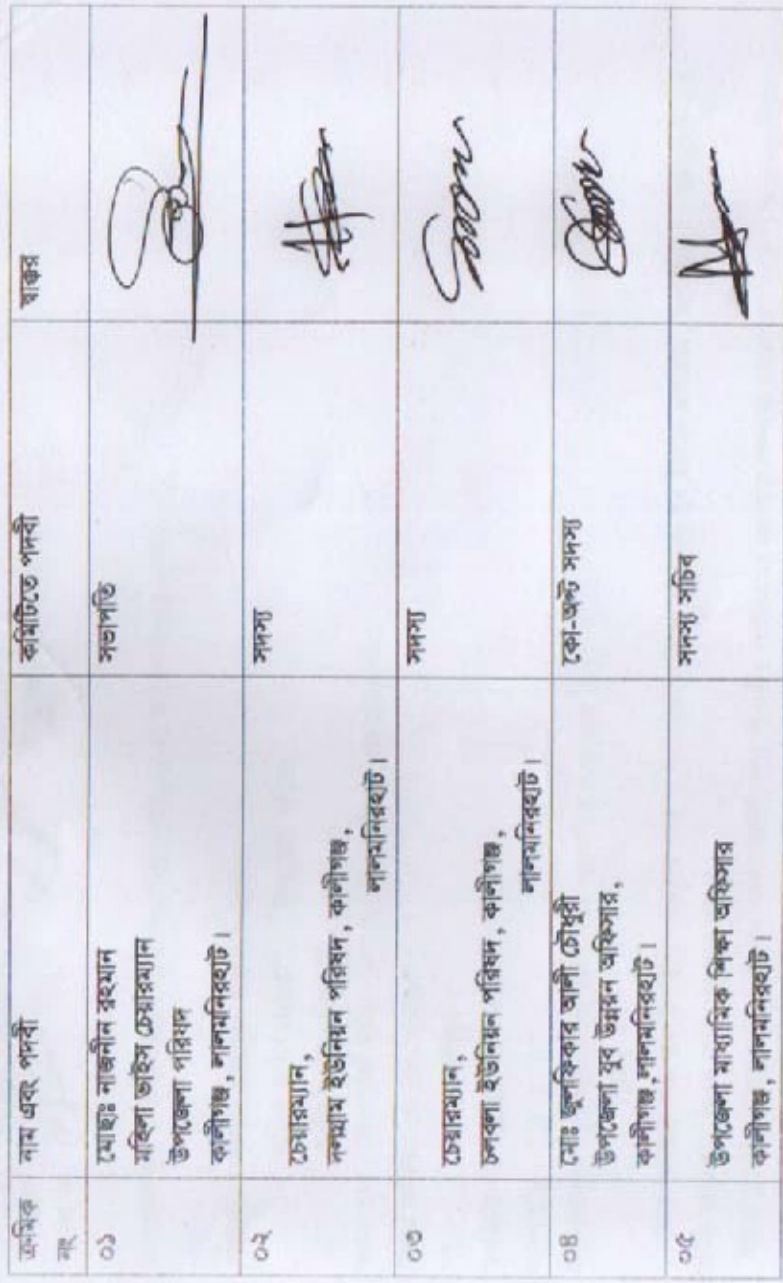 ক্রমিক নং
নাম এবং পদবী
কমিটিতে পদবী
স্বাক্ষর
০১
মোছাঃ নাজনীন রহমান
মহিলা ভাইস চেয়ারম্যান
উপজেলা পরিষদ
কালীগঞ্জ, লালমনিরহাট।
সভাপতি
০২
চেয়ারম্যান,
দলগ্রাম ইউনিয়ন পরিষদ, কালীগঞ্জ,
লালমনিরহাট।
সদস্য
০৩
চেয়ারম্যান,
চলবলা ইউনিয়ন পরিষদ, কালীগঞ্জ,
লালমনিরহাট।
সদস্য
০৪
মোঃ জুলফিকার আলী চৌধুরী
উপজেলা যুব উন্নয়ন অফিসার,
কালীগঞ্জ, লালমনিরহাট।
কো-অপ্ট সদস্য
০৫
উপজেলা মাধ্যমিক শিক্ষা অফিসার
কালীগঞ্জ, লালমনিরহাট।
সদস্য সচিব